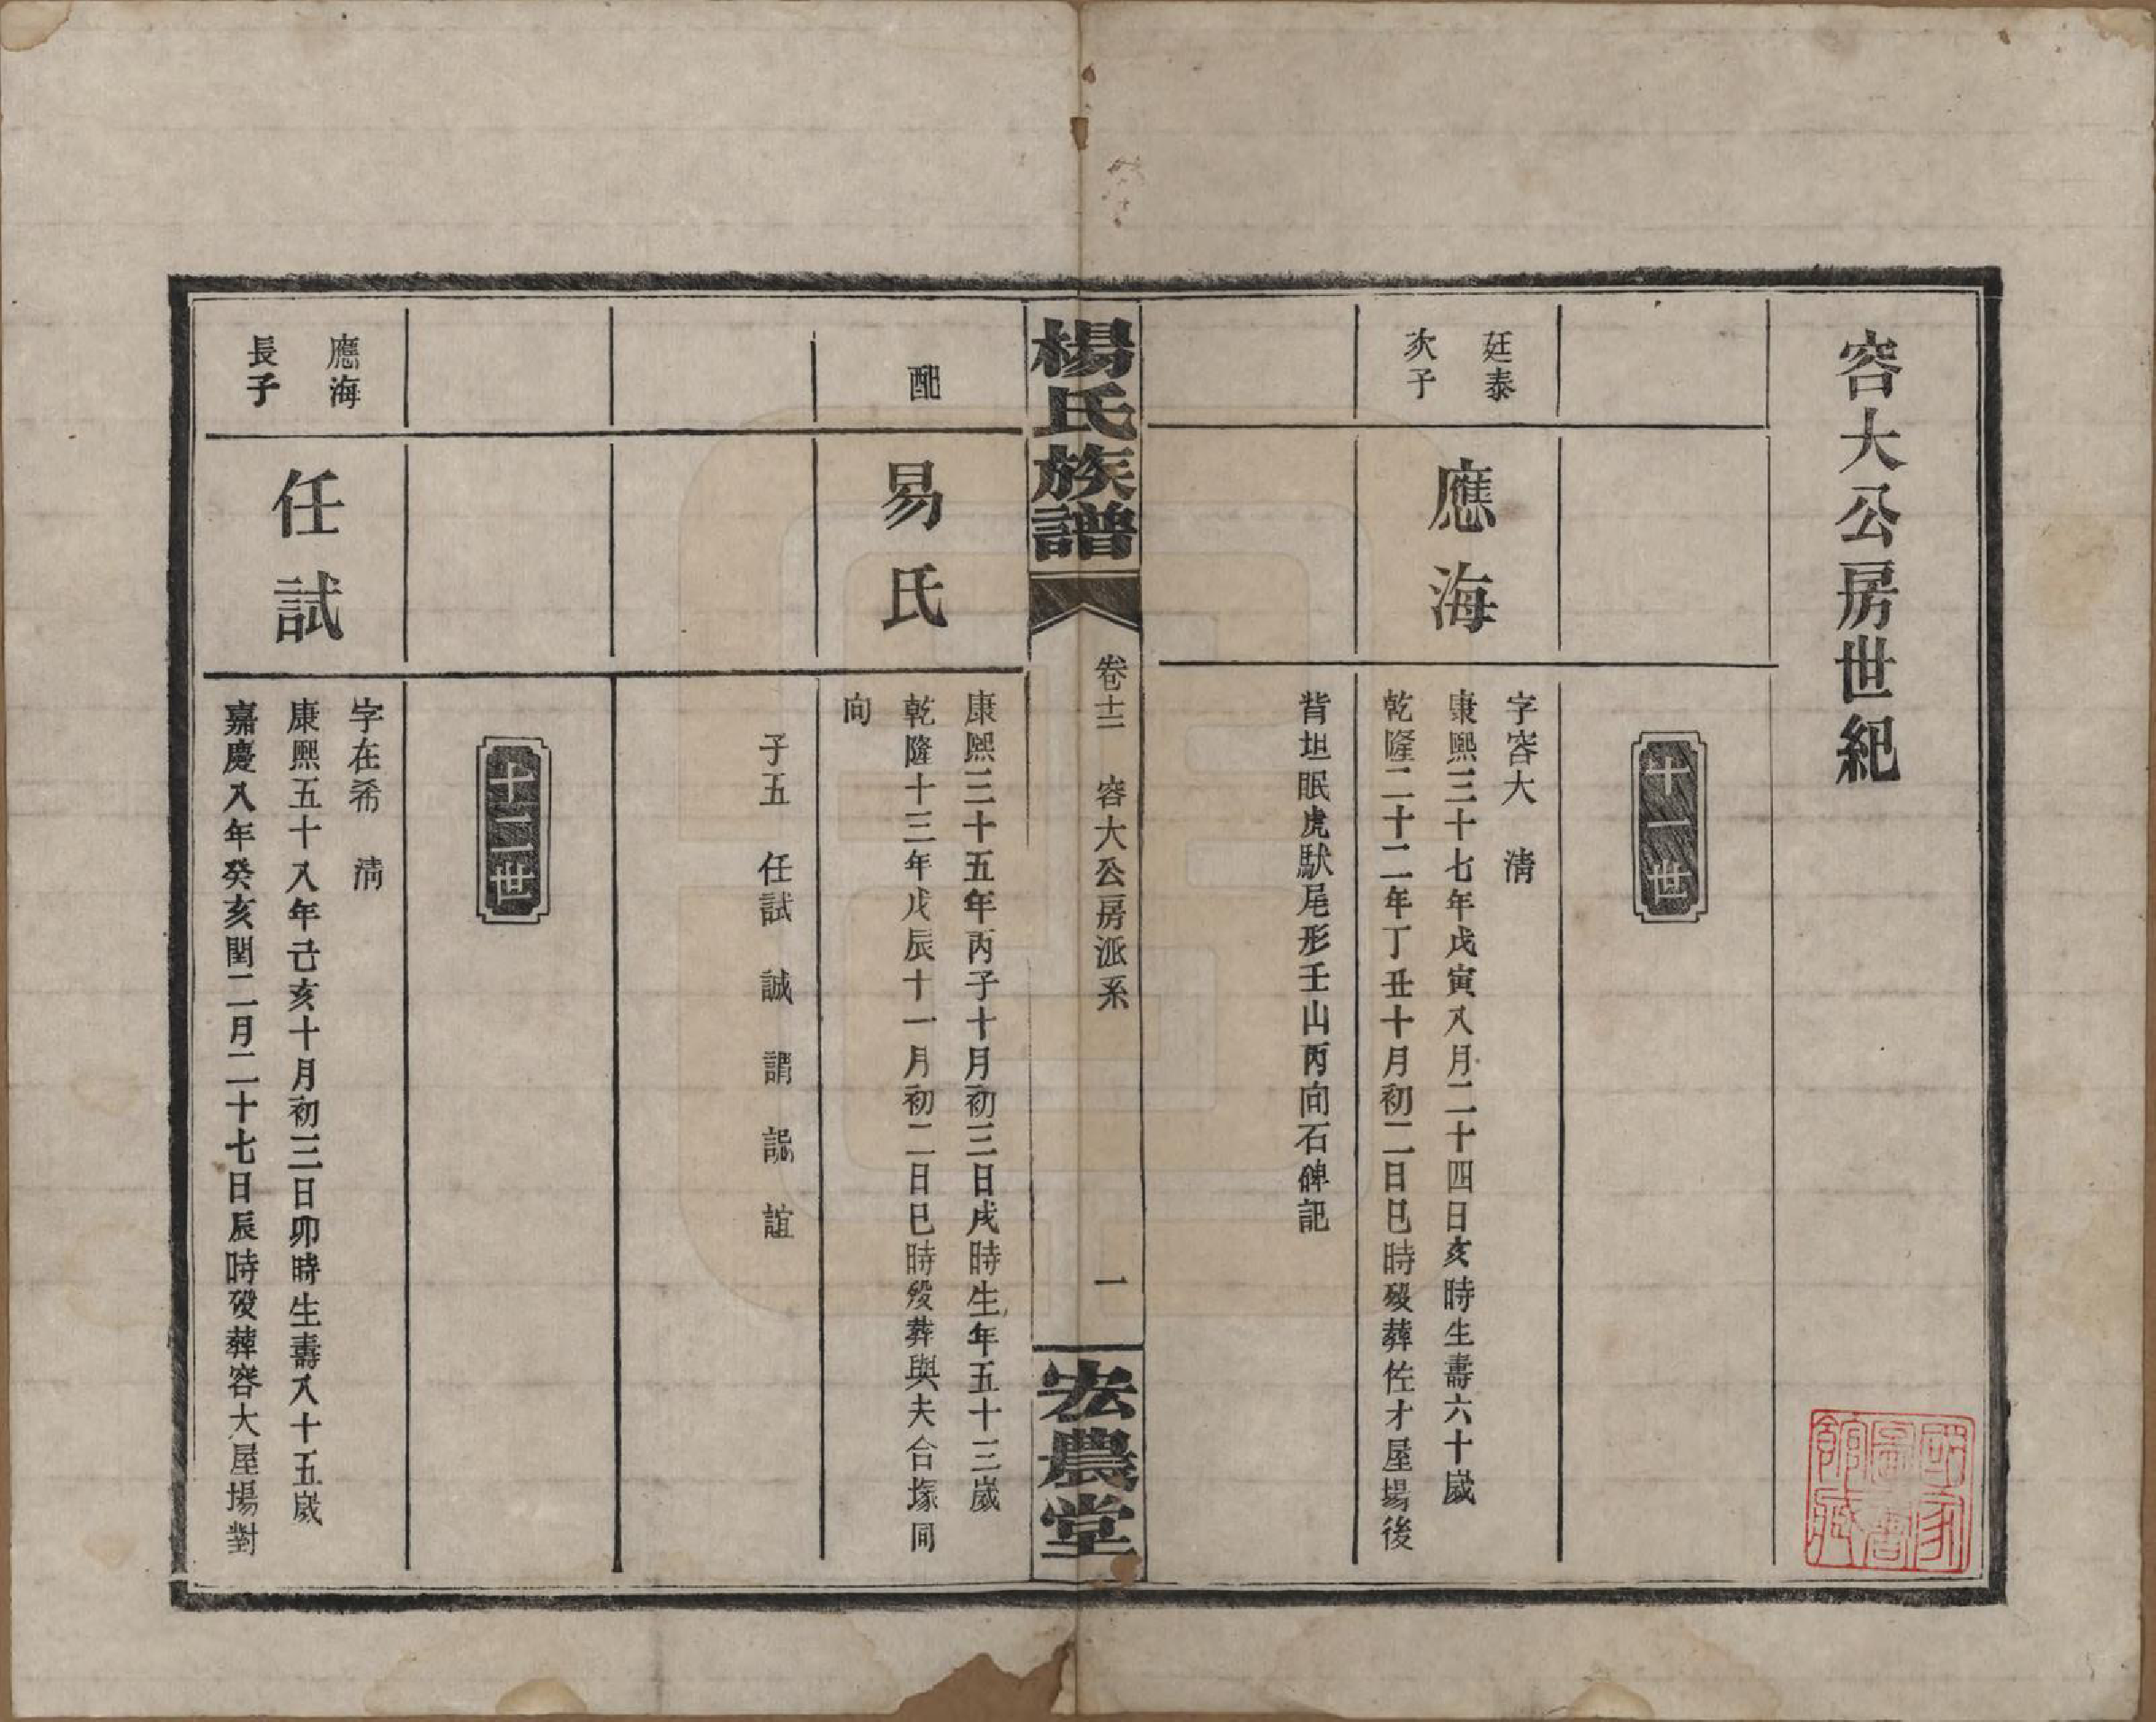 容大公房世紀
十一世
廷泰
次子
應海
字容大　清
康熙三十七年戊寅八月二十四日亥時生壽六十歲
乾隆二十二年丁丑十月初二日巳時殁葬佐才屋場後
背坦眠虎馱尾形壬山丙向石碑記
楊氏族譜
卷十二　容大公房派系
一
宏農堂
配
易氏
康熙三十五年丙子十月初三日戌時生年五十三歲
乾隆十三年戊辰十一月初二日巳時殁葬與夫合塚同
向
子五　任試　誠　謂　諰　誼
十二世
應海
長子
任試
字在希　清
康熙五十八年己亥十月初三日卯時生壽八十五歲
嘉慶八年癸亥閏二月二十七日辰時殁葬容大屋場對
國家
圖書
館藏